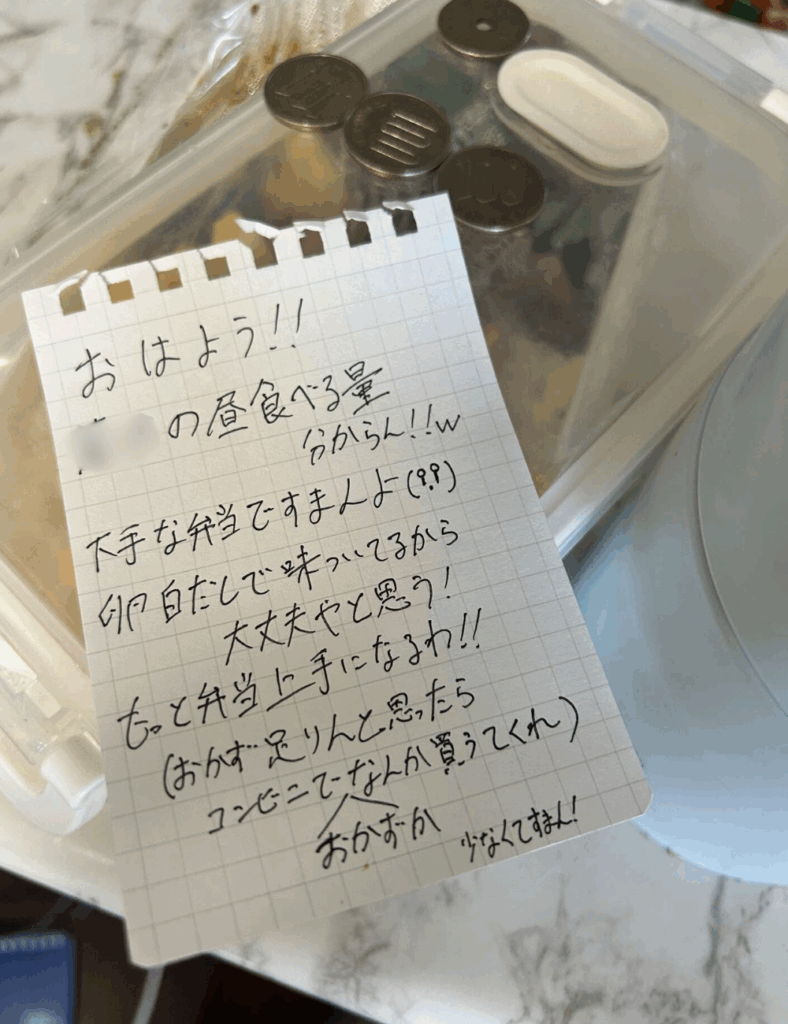 おはよう!!
の昼食べる量
分からん!!w
下手な弁当ですまんよ(9,9)
卵白だしで味ついてるから
大丈夫やと思う!
もっと弁当上手になるわ!!
(おかず足りんと思ったら
コンビニでなんか買うてくれ)
おかずか
少なくてすまん!
100